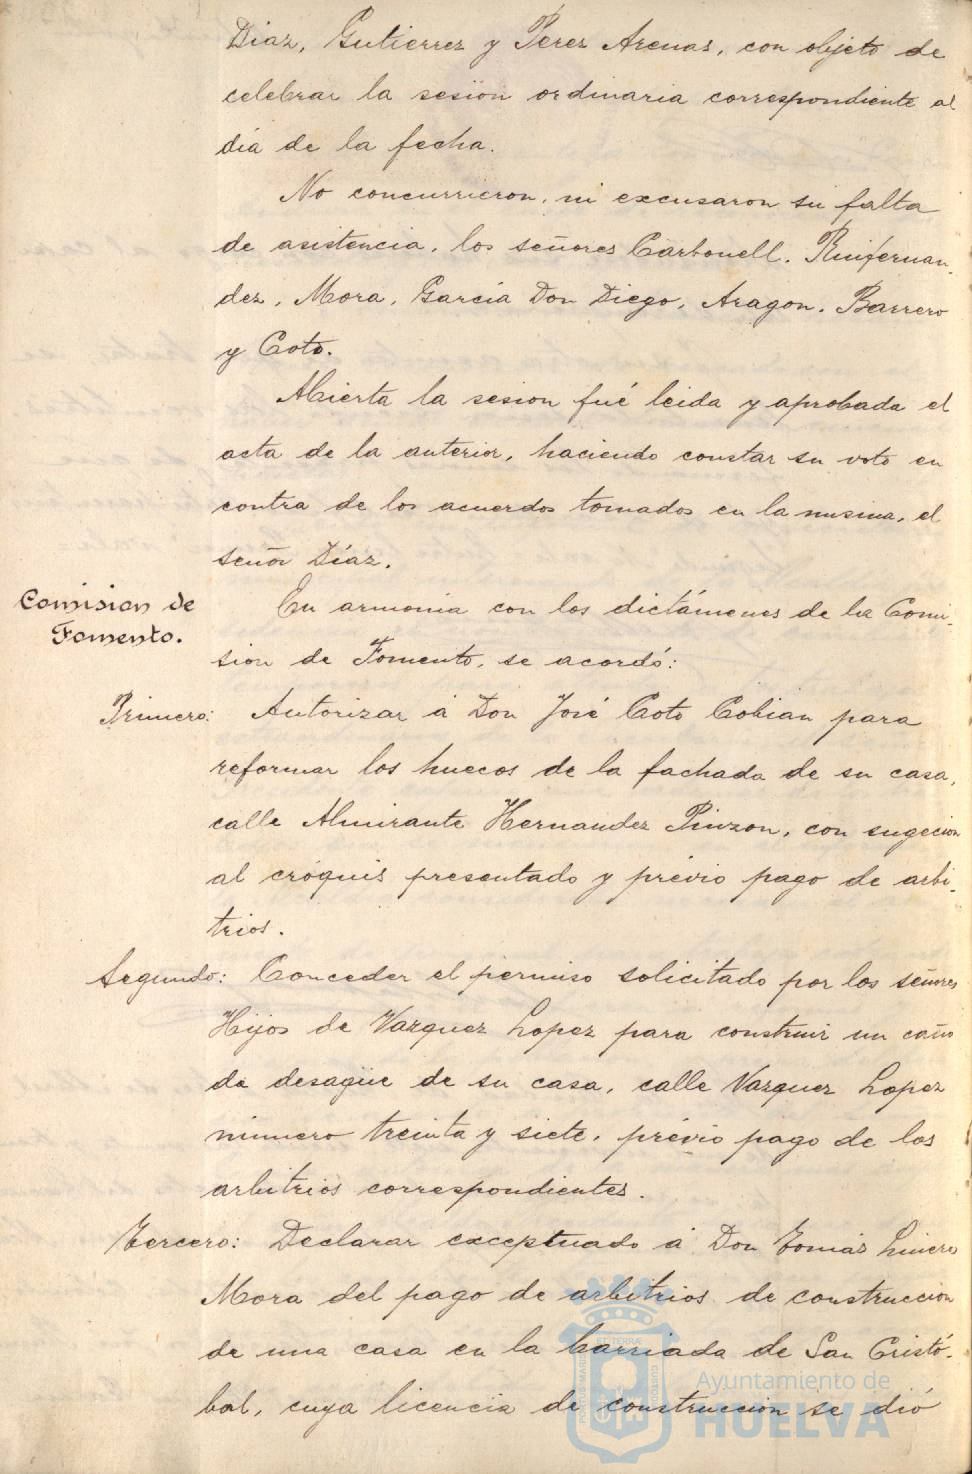 Diaz, Gutierrez y Perez Arenas, con objeto de
celebrar la sesión ordinaria correspondiente al
día de la fecha.
No concurrieron, ni excusaron su falta
de asistencia, los señores Carbonell, Ruifernan-
dez, Mora, García Don Diego, Aragon, Barrero
y Coto.
Abierta la sesion fué leida y aprobada el
acta de la anterior, haciendo constar su voto en
contra de los acuerdos tomados en la misma, el
señor Díaz.
Comision de
Fomento.
En armonia con los dictámenes de la Comi-
sion de Fomento, se acordó:
Primero: Autorizar á Don José Coto Cobian para
reformar los huecos de la fachada de su casa,
calle Almirante Hernandez Pinzon, con sugecion
al cróquis presentado y prévio pago de arbi-
trios.
Segundo: Conceder el permiso solicitado por los señores
Hijos de Vazquez Lopez para construir un caño
de desagüe de su casa, calle Vazquez Lopez
número treinta y siete, prévio pago de los
arbitrios correspondientes.
Tercero: Declarar exceptuado á Don Tomás Linero
Mora del pago de arbitrios de construccion
de una casa en la barriada de San Cristó-
bal, cuya licencia de construccion se dió
Ayuntamiento de
HUELVA